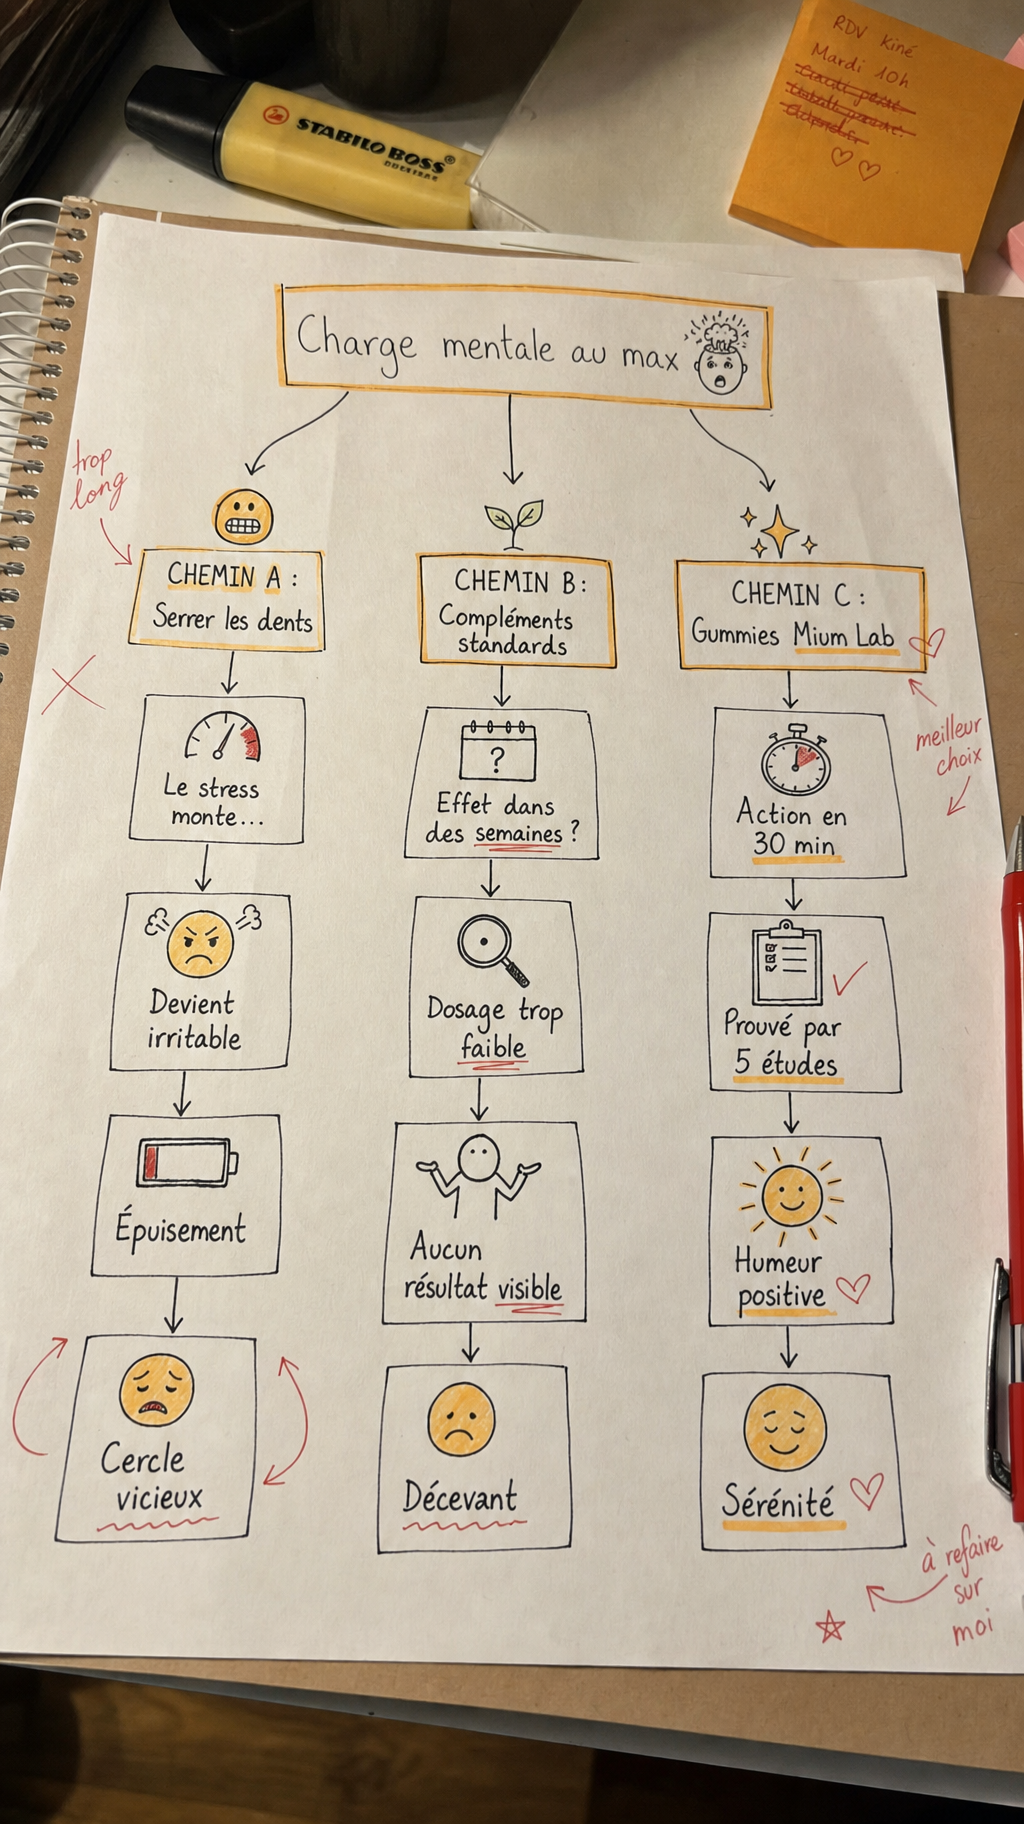 RDV Kiné
Mardi 10h
STABILO BOSS
Charge mentale au max
trop
long
CHEMIN A :
Serrer les dents
Le stress
monte...
Devient
irritable
Épuisement
Cercle
vicieux
CHEMIN B :
Compléments
standards
?
Effet dans
des semaines ?
Dosage trop
faible
Aucun
résultat visible
Décevant
CHEMIN C :
Gummies Mium Lab
meilleur
choix
Action en
30 min
Prouvé par
5 études
Humeur
positive
Sérénité
à refaire
sur
moi